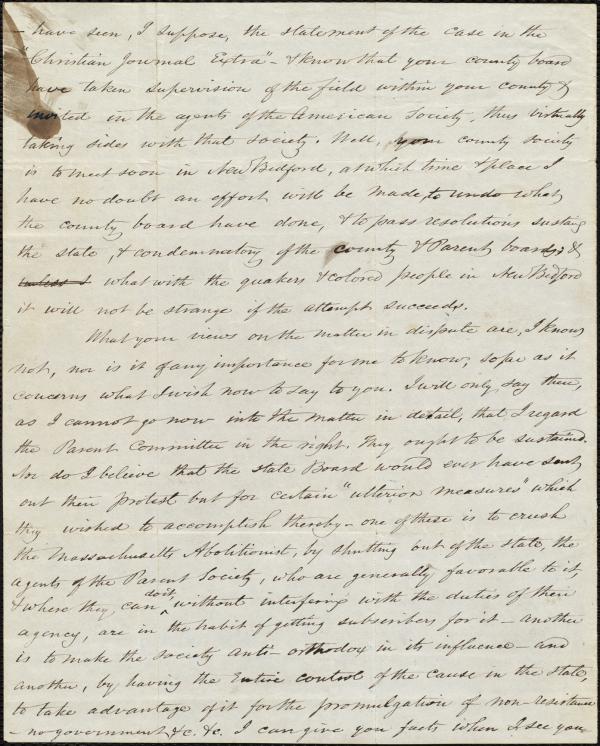 - have seen, I suppose, the statement of the case in the
"Christian Journal Extra" - & know that your county board
have taken supervision of the field within your county &
invited in the agents of the American Society, thus virtually
taking sides with that society. Well, your county society
is to meet soon in New Bedford, at which time & place I
have no doubt an effort will be made, to undo what
the county board have done, & to pass resolutions sustaing
the state, & condemnatory of the county & Parent boards; &
unless I what with the quakers & colored people in New Bedford
it will not be strange if the attempt succeeds.
What your views on the matter in dispute are, I know
not, nor is it of any importance for me to know, so far as it
concerns what I wish now to say to you. I will only say then,
as I cannot go now into the matter in detail, that I regard
the Parent Committee in the right. They ought to be sustained.
Nor do I believe that the state Board would ever have sent
out their protest but for certain "ulterior measures" which
they wished to accomplish thereby - one of these is to crush
the Massachusetts Abolitionist, by shutting out of the state, the
agents of the Parent Society, who are generally favorable to it,
& where they can do it, without interfering with the duties of their
agency, are in the habit of getting subscribers for it - another
is to make the society anti-orthodox in its influence - and
another, by having the entire control of the cause in the state,
to take advantage of it for the promulgation of non-resistance
- no government &c. &c. I can give you facts when I see you